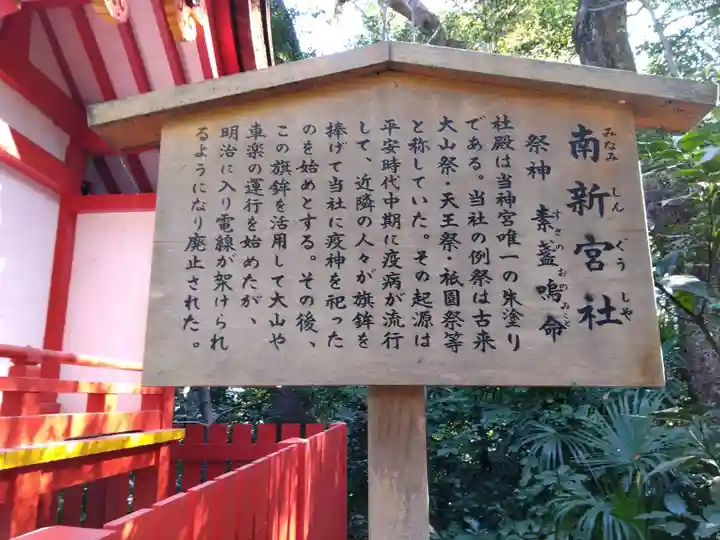 南新宮社
みなみしんぐうしや
祭神 素盞嗚命
すさのおのみこと
社殿は当神宮唯一の朱塗り
である。当社の例祭は古来
大山祭・天王祭・祇園祭等
と称していた。その起源は
平安時代中期に疫病が流行
して、近隣の人々が旗鉾を
捧げて当社に疫神を祀った
のを始めとする。その後、
この旗鉾を活用して大山や
車楽の運行を始めたが、
明治に入り電線が架けられ
るようになり廃止された。